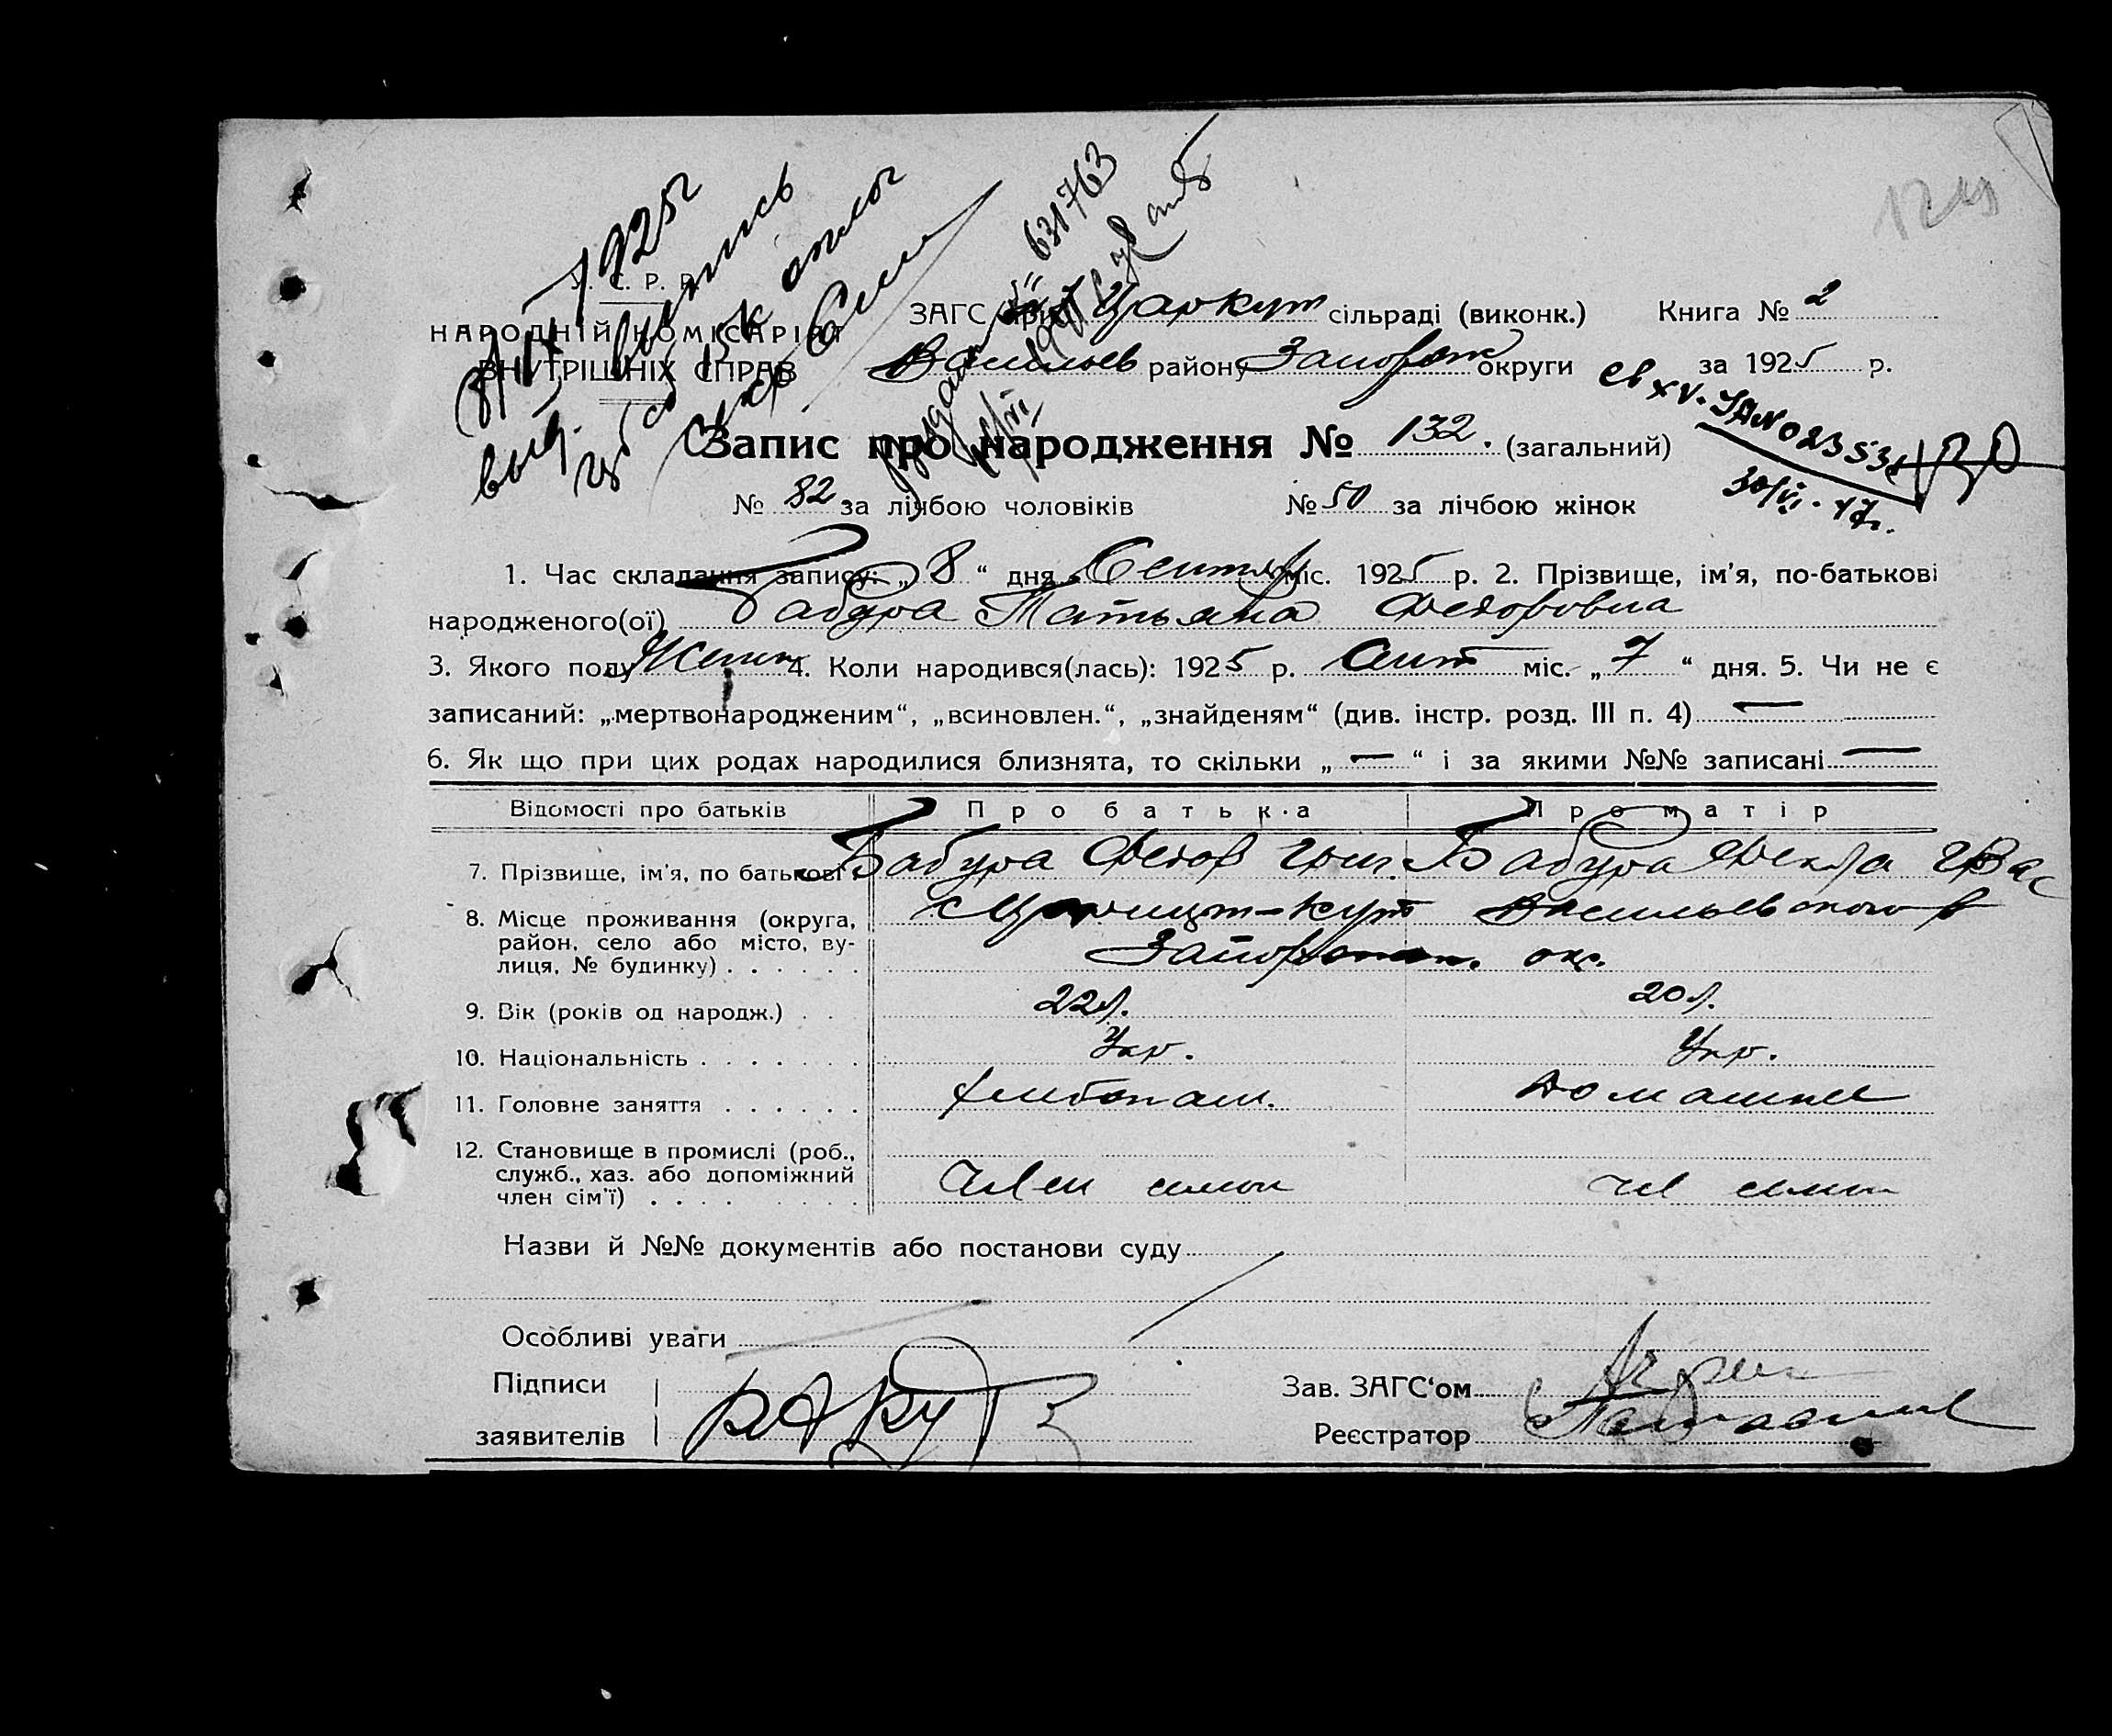 1925г
выпись
631763
У. С. Р. Р.
НАРОДНІЙ КОМІСАРІЯТ
ВНУТРІШНІХ СПРАВ
ЗАГС при Царкут сільраді (виконк.) Книга № 2
Васильев району Запорож округи за 1925 р.
св XV-ЯА № 023538
30/VI-47г.
Запис про народження № 132. (загальний)
№ 82 за лічбою чоловіків № 50 за лічбою жінок
1. Час складання запису: „ 8 “ дня Сентяб міс. 1925 р. 2. Прізвище, ім’я, по-батькові
народженого(ої) Бабура Татьяна Федоровна
3. Якого полу Женск 4. Коли народився(лась): 1925 р. Сент міс. „ 7 “ дня. 5. Чи не є
записаний: „мертвонародженим“, „всиновлен.“, „знайденям“ (див. інстр. розд. III п. 4) —
6. Як що при цих родах народилися близнята, то скільки „ — “ і за якими №№ записані —
Відомості про батьків Про батька Про матір
7. Прізвище, ім’я, по батькові. Бабура Федор Григ. Бабура Фекла Вас
8. Місце проживання (округа, район, село або місто, вулиця, № будинку) . . . . . . с Царицын-Кут Васильевского р
Запорожск. окр.
9. Вік (років од народж.) . . 22 л. 20 л.
10. Національність . . . . . . . Укр. Укр.
11. Головне заняття . . . . . . хлебопаш. Домашнее
12. Становище в промислі (роб., служб., хаз. або допоміжний член сім’ї) . . . . Член семьи чл семьи
Назви й №№ документів або постанови суду
Особливі уваги
Підписи
заявителів
Зав. ЗАГС‘ом
Реєстратор